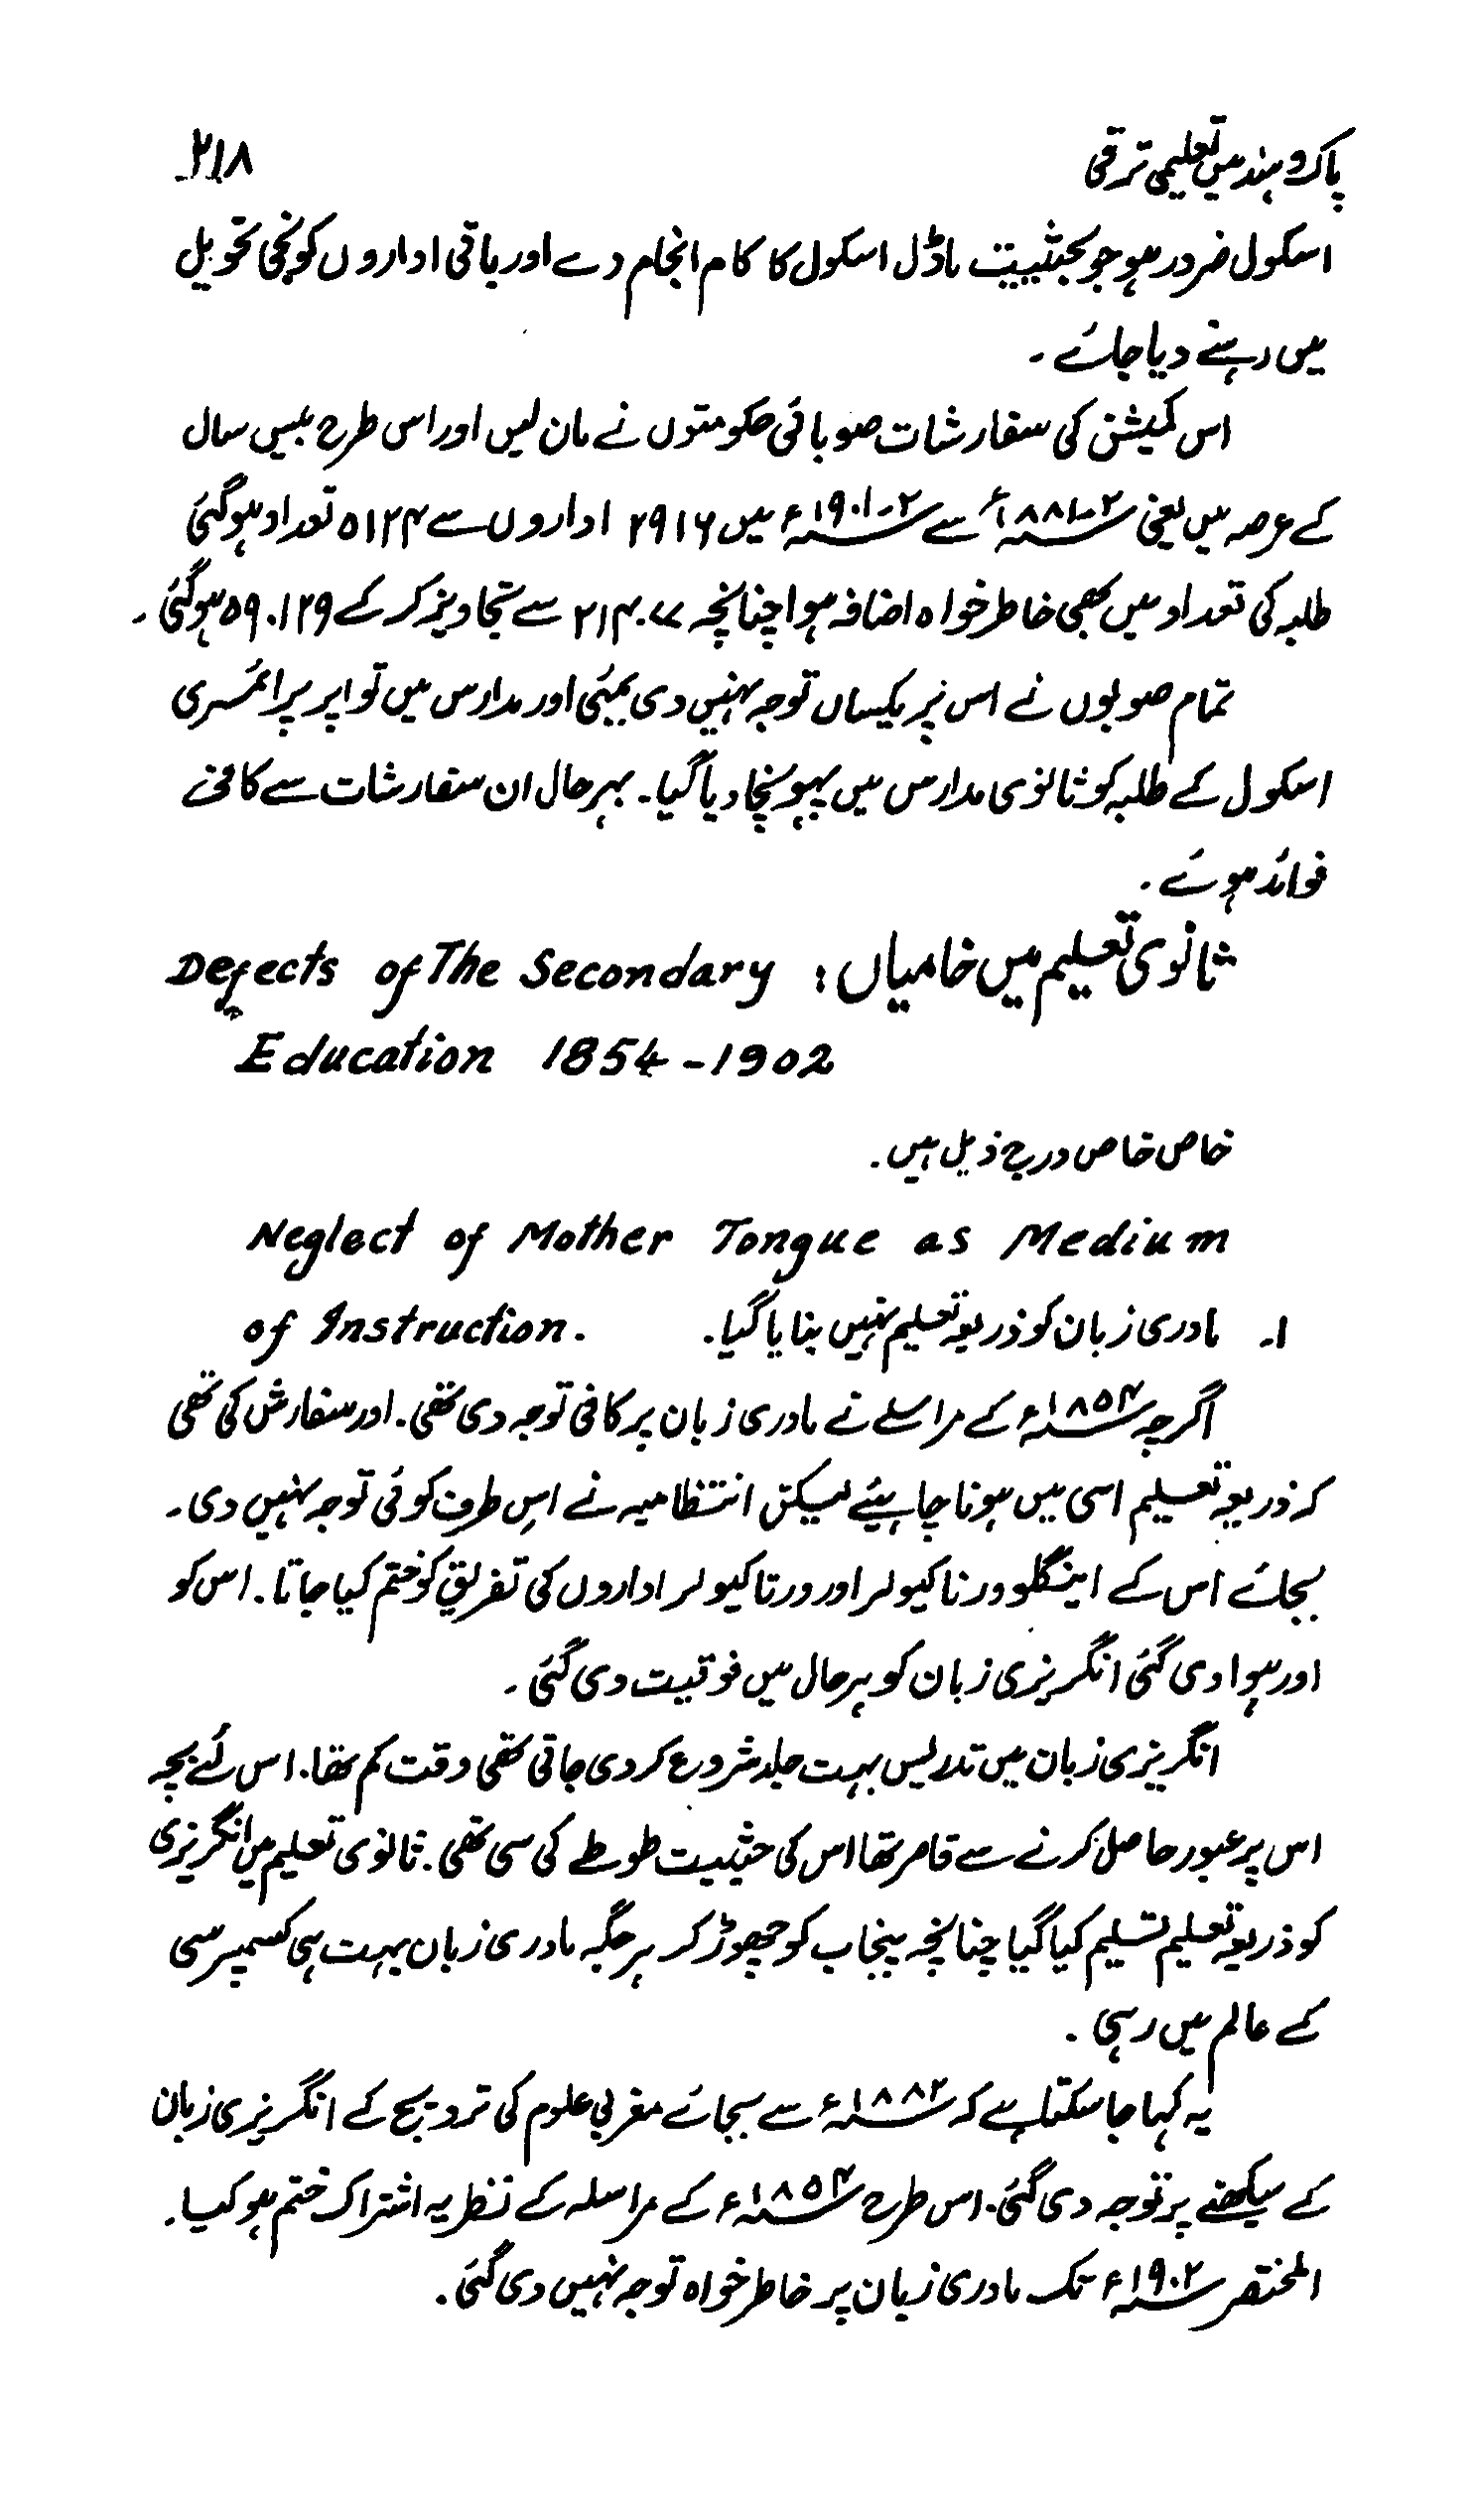 پاک و ہند میں تعلیمی ترقی ۲۱۸
اسکول ضرور ہو جو بحیثیت ماڈل اسکول کا کام انجام دے اور باقی اداروں کو نجی تحویل
میں رہنے دیا جائے۔
اس کمیشن کی سفارشات صوبائی حکومتوں نے مان لیں اور اس طرح بیس سال
کے عرصہ میں یعنی ۲-۱۸۸۱ء سے ۲-۱۹۰۱ء میں ۳۹۱۶ اداروں سے ۵۱۲۴ تعداد ہو گئی
طلبہ کی تعداد میں بھی خاطر خواہ اضافہ ہوا چنانچہ ۲۱۴۰۷۷ سے تجاویز کر کے ۵۹۰۱۲۹ ہو گئی۔
تمام صوبوں نے اس پر یکساں توجہ نہیں دی بمبئی اور مدارس میں تو اپر پرائمری
اسکول کے طلبہ کو ثانوی مدارس میں پہونچا دیا گیا۔ بہر حال ان سفارشات سے کافی
فوائد ہوئے۔
ثانوی تعلیم میں خامیاں: Defects of The Secondary
Education 1854-1902
خاص خاص درج ذیل ہیں۔
Neglect of Mother Tongue as Medium
۱۔ مادری زبان کو ذریعہ تعلیم نہیں بنایا گیا۔ of Instruction.
اگرچہ ۱۸۵۴ء کے مراسلے نے مادری زبان پر کافی توجہ دی تھی۔ اور سفارش کی تھی
کہ ذریعہ تعلیم اسی میں ہونا چاہیئے لیکن انتظامیہ نے اس طرف کوئی توجہ نہیں دی۔
بجائے اس کے اینگلو ورناکیولر اور ورناکیولر اداروں کی تفریق کو ختم کیا جاتا۔ اس کو
اور ہوا دی گئی انگریزی زبان کو ہر حال میں فوقیت دی گئی۔
انگریزی زبان میں تدریس بہت جلد شروع کر دی جاتی تھی وقت کم تھا۔ اس لئے بچہ
اس پر عبور حاصل کرنے سے قاصر تھا اس کی حیثیت طوطے کی سی تھی۔ ثانوی تعلیم میں انگریزی
کو ذریعہ تعلیم تسلیم کیا گیا چنانچہ پنجاب کو چھوڑ کر ہر جگہ مادری زبان بہت ہی کسمپرسی
کے عالم میں رہی۔
یہ کہا جا سکتا ہے کہ ۱۸۸۲ء سے بجائے مغربی علوم کی ترویج کے انگریزی زبان
کے سیکھنے پر توجہ دی گئی۔ اس طرح ۱۸۵۴ء کے مراسلہ کے نظریہ اشتراک ختم ہو گیا۔
المختصر ۱۹۰۲ء تک مادری زبان پر خاطر خواہ توجہ نہیں دی گئی۔